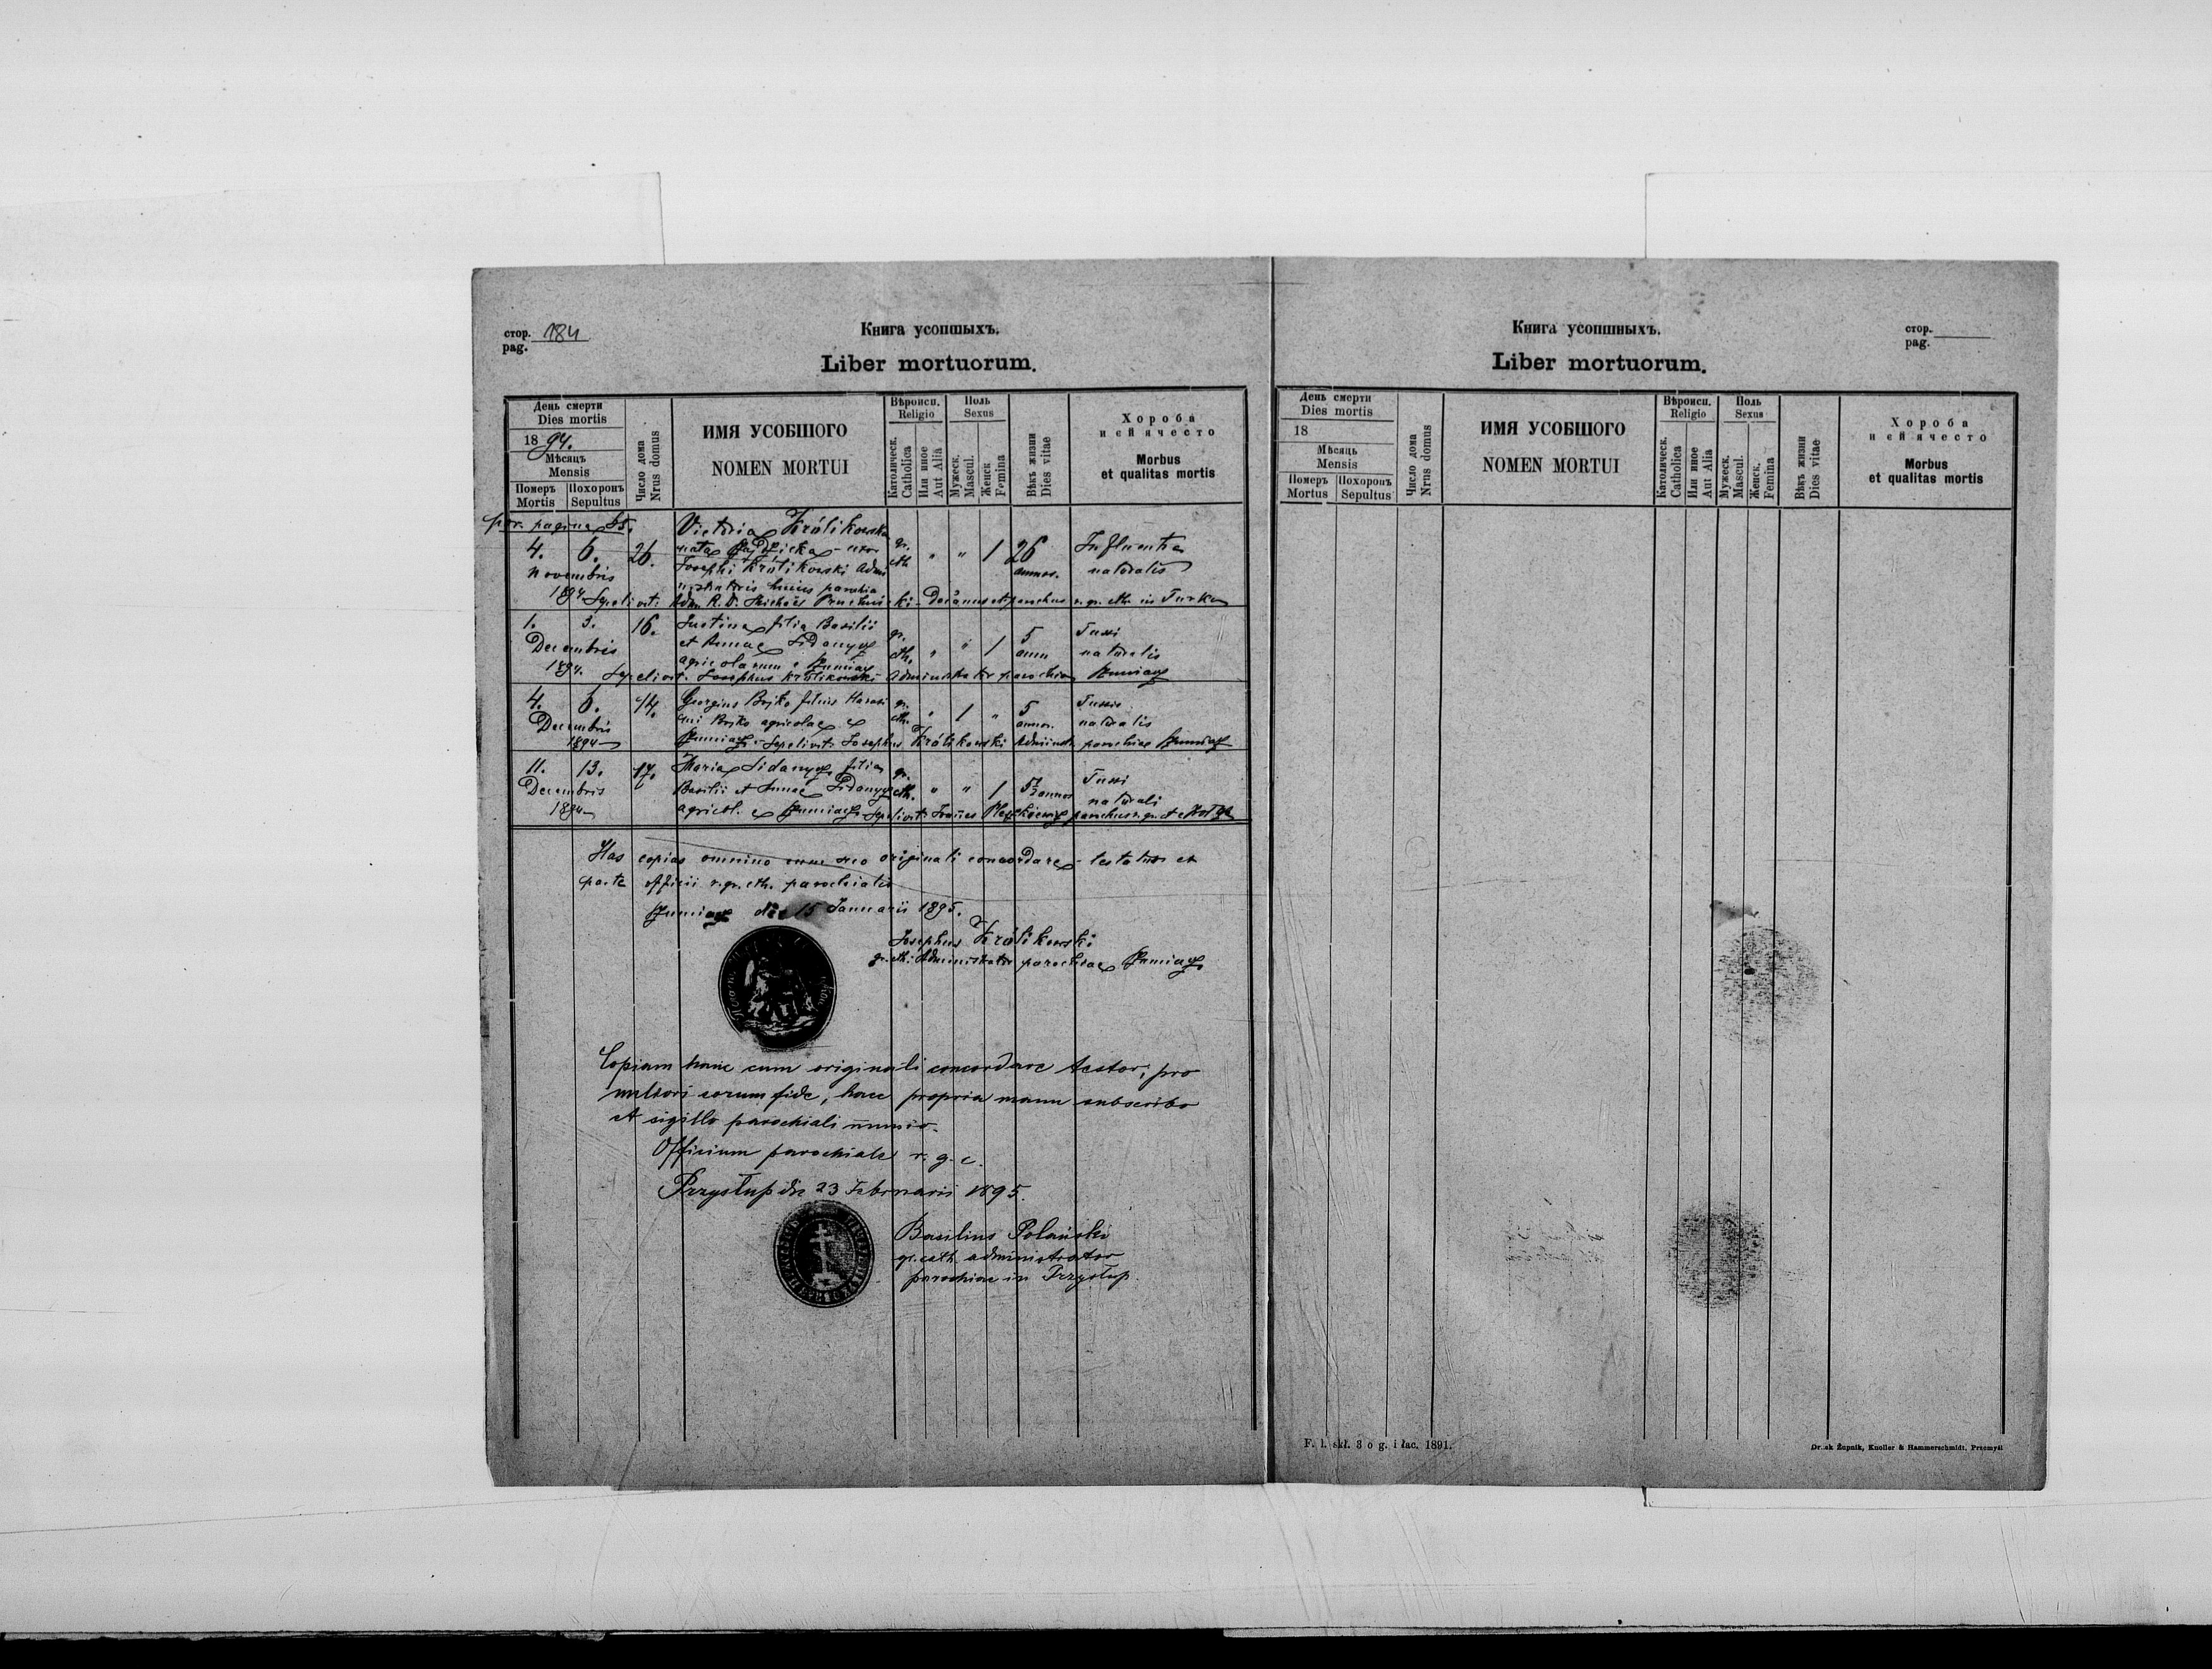 стор. 184
pag.
Книга усопшыхъ.
Liber mortuorum.
День смерти
Dies mortis
1894.
Мѣсяць
Mensis
Померъ Похоронъ
Mortis Sepultus
Число дома
Nrus domus
ИМЯ УСОБШОГО
NOMEN MORTUI
Вѣроисп.
Religio
Католическ.
Catholica
Или иное
Aut Alia
Поль
Sexus
Мужеск.
Mascul.
Женск
Femina
Вѣкъ жизни
Dies vitae
Хороба
и єй ячесто
Morbus
et qualitas mortis
pagina 85.
4. 6. 26. Victoria Królikowska
nata uxor gr. " " 1 26 Influentia
Novembris Josephi Królikowski Admi cth. annor. naturalis
nistratoris huius parochiae
1894 Sepelivit: Adm. R. D. Michaës Decanus et parochus r. gr. cth. in Turka
1. 3. 16. Justina filia Basilii gr. " " 1 5 Tussi
Decembris et Annae Sidanycz cth. ann naturalis
agricolarum e
1894. Sepelivit: Josephus Królikowski Administrator parochiae
4. 6. 14. Georgius Bojko filius Harasi gr. " 1 " 5 Tussis
Decembris mi Bojko agricolae e cth. annor. naturalis
1894 Sepelivit Josephus Królikowski Administr. parochiae
11. 13. 17. Maria Sidanycz filia gr. " " 1 5½ annor Tussi
Decembris Basilii et Annae Sidanycz cth. naturali
1894 agricol. e Sepelivit Joañes parochus r. gr.
Has copias omnino cum suo originali concordare testatur ex
parte officii r. gr. cth. parochialis
die 15 Januarii 1895.
Josephus Królikowski
gr. cth. Administrator parochiae
Copiam hanc cum originali concordare testor, pro
fide, hace propria manu subscribo
et sigillo parochiali munio.
Officium parochiale r. g. c.
Przysłup die 23 Februarii 1895.
Basilius Polański
gr. cath. administrator
parochiae in Przysłup.
стор.
pag.
Книга усопшныхъ.
Liber mortuorum.
День смерти
Dies mortis
18
Мѣсяць
Mensis
Померъ Похоронъ
Mortus Sepultus
Число дома
Nrus domus
ИМЯ УСОБШОГО
NOMEN MORTUI
Вѣроисп.
Religio
Католическ.
Catholica
Или иное
Aut Alia
Поль
Sexus
Мужеск.
Mascul.
Женск.
Femina
Вѣкъ жизни
Dies vitae
Хороба
и єй ячесто
Morbus
et qualitas mortis
F. l. skł. 3 o g. i łac. 1891.
Druk Żupnik, Knoller & Hammerschmidt, Przemyśl